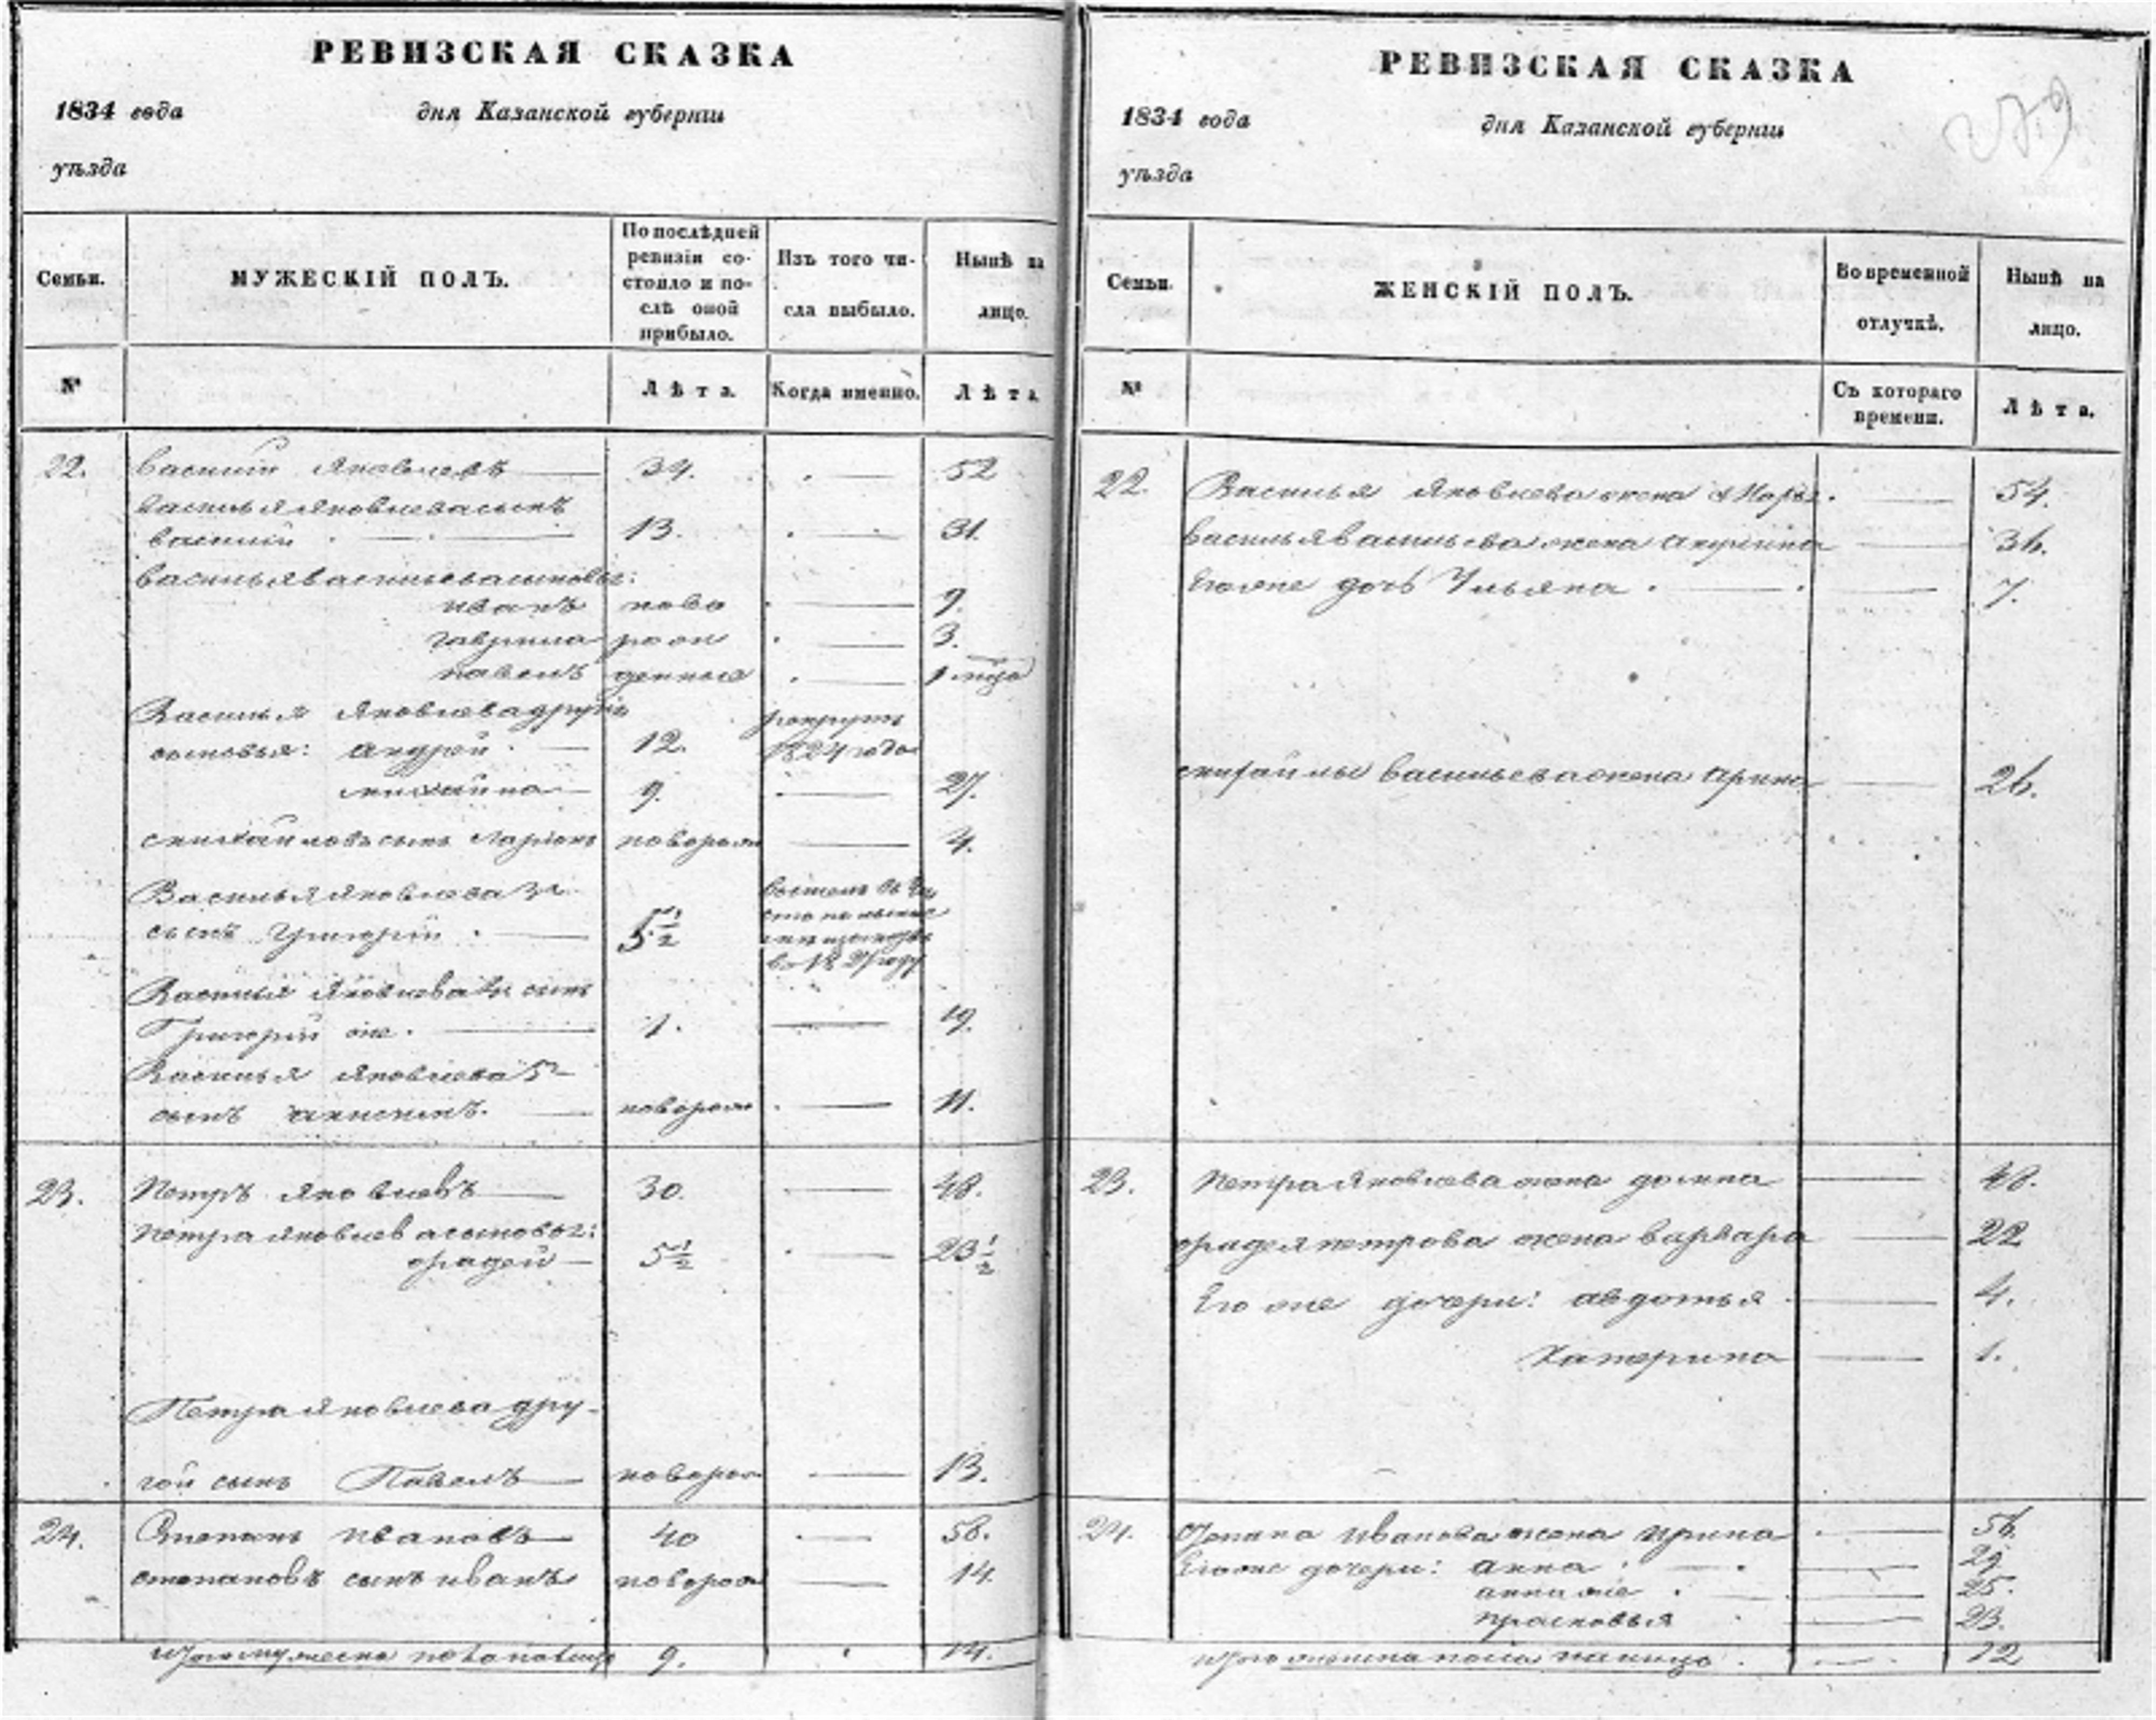 РЕВИЗСКАЯ СКАЗКА
1834 года дня Казанской губерніи
уѣзда
Семьи.
МУЖЕСКІЙ ПОЛЪ.
По послѣдней
ревизіи со-
стояло и по-
слѣ оной
прибыло.
Изъ того чи-
сла выбыло.
Нынѣ на
лицо.
№
Лѣта.
Когда именно.
Лѣта
22. Василий Яковлевъ 34. 52
Василья Яковлева сынъ
Василий 13. 31.
Василья Васильева сыновья:
Иванъ ново 9.
Гаврила рож 3.
Павелъ денные 1 мца
Василья Яковлева другие рекрутъ
сыновья: Андрей 12. 1824 года
Михайла 9. 27.
Михайловъ сынъ Ларіонъ новорож 4.
Василья Яковлева 3й
сынъ Григорий 5½
в 1827 году
Василья Яковлева 4й сынъ
Григорий же 1. 19.
Василья Яковлева 5й
сынъ Анисимъ новорож 11.
23. Петръ Яковлевъ 30. 48.
Петра Яковлева сыновья:
Фадей 5½ 23½
Петра Яковлева дру-
гой сынъ Павелъ новорож 13.
24. Степанъ Ивановъ 40 58.
Степановъ сынъ Иванъ новорож 14.
Итого мужеска пола 9. 14.
РЕВИЗСКАЯ СКАЗКА
279
1834 года дня Казанской губерніи
уѣзда
Семьи.
ЖЕНСКІЙ ПОЛЪ.
Во временной
отлучкѣ.
Нынѣ на
лицо.
№
Съ котораго
времени.
Лѣта.
22. Василья Яковлева жена Марья 54.
Василья Васильева жена Акулина 36.
Его же дочь Ульяна 7.
Михайлы Васильева жена Арина 26.
23. Петра Яковлева жена Домна 48.
Фадея Петрова жена Варвара 22
Его же дочери: Авдотья 4.
Катерина 1.
24. Степана Иванова жена Ирина 56.
Его же дочери: Анна 29.
Анна же 25.
Прасковья 23.
Итого женска пола налицо 12